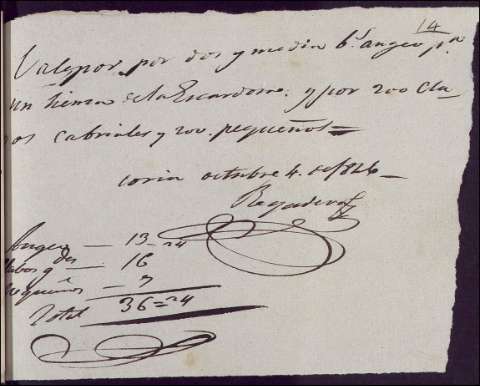 14
Vale por, por dos y media b.s angeo p.a
un lienzo de la Escardon. y por 200 cla-
bos cabriales y 200. pequeños =
coria octubre 4. de 1826
Regadera
Angeo — 13 = 24
Clabos gdes — 16
Pequeños — 7
Total 36 = 24